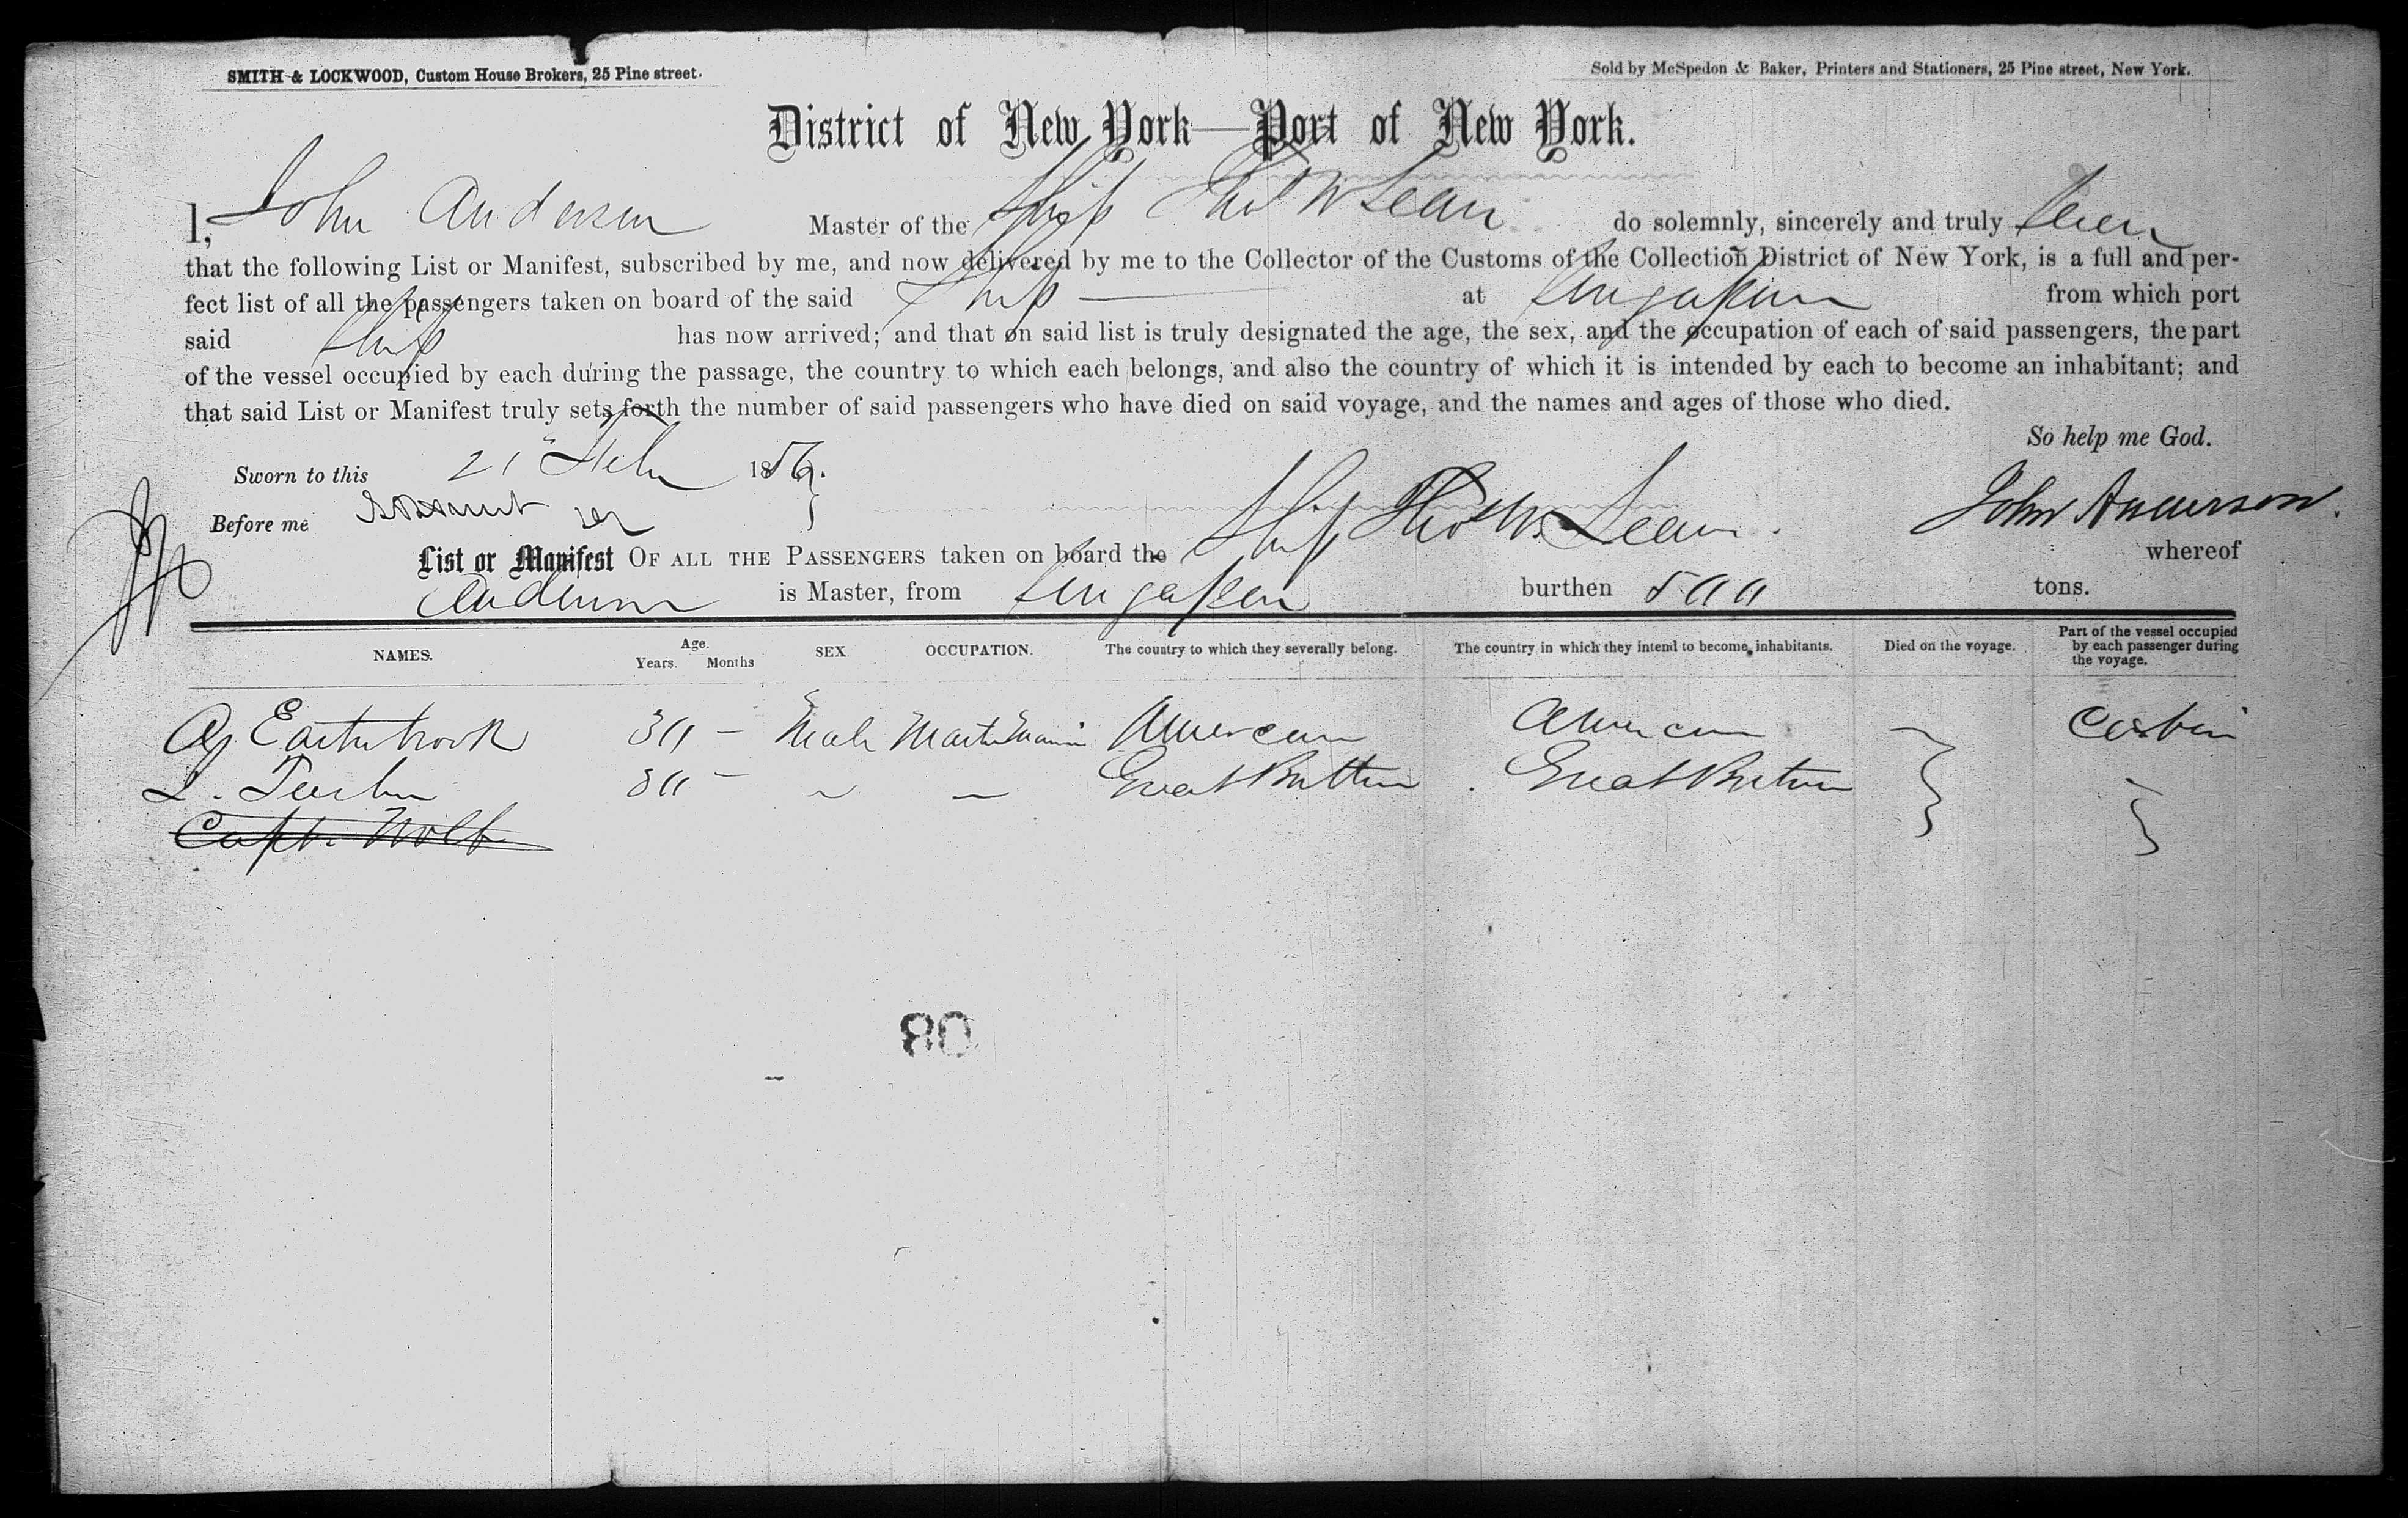 SMITH & LOCKWOOD, Custom House Brokers, 25 Pine street.
Sold by McSpedon & Baker, Printers and Stationers, 25 Pine street, New York.
District of New York—Port of New York.
I, John Anderson Master of the Ship Thos W Sears do solemnly, sincerely and truly swear
that the following List or Manifest, subscribed by me, and now delivered by me to the Collector of the Customs of the Collection District of New York, is a full and per-
fect list of all the passengers taken on board of the said Ship — at Singapore from which port
said Ship has now arrived; and that on said list is truly designated the age, the sex, and the occupation of each of said passengers, the part
of the vessel occupied by each during the passage, the country to which each belongs, and also the country of which it is intended by each to become an inhabitant; and
that said List or Manifest truly sets forth the number of said passengers who have died on said voyage, and the names and ages of those who died.
So help me God.
Sworn to this 21 1856.
Before me
John Anderson.
List or Manifest OF ALL THE PASSENGERS taken on board the Ship Thos W. Sears. whereof
Anderson is Master, from Singapore burthen 500 tons.
NAMES. Age. Years. Months SEX. OCCUPATION. The country to which they severally belong. The country in which they intend to become inhabitants. Died on the voyage. Part of the vessel occupied by each passenger during the voyage.
Easterbrook 30 — Male Master Marin American American — Cabin
L. 30 — — Great Britain Great Britain
Capt. Wolf
80